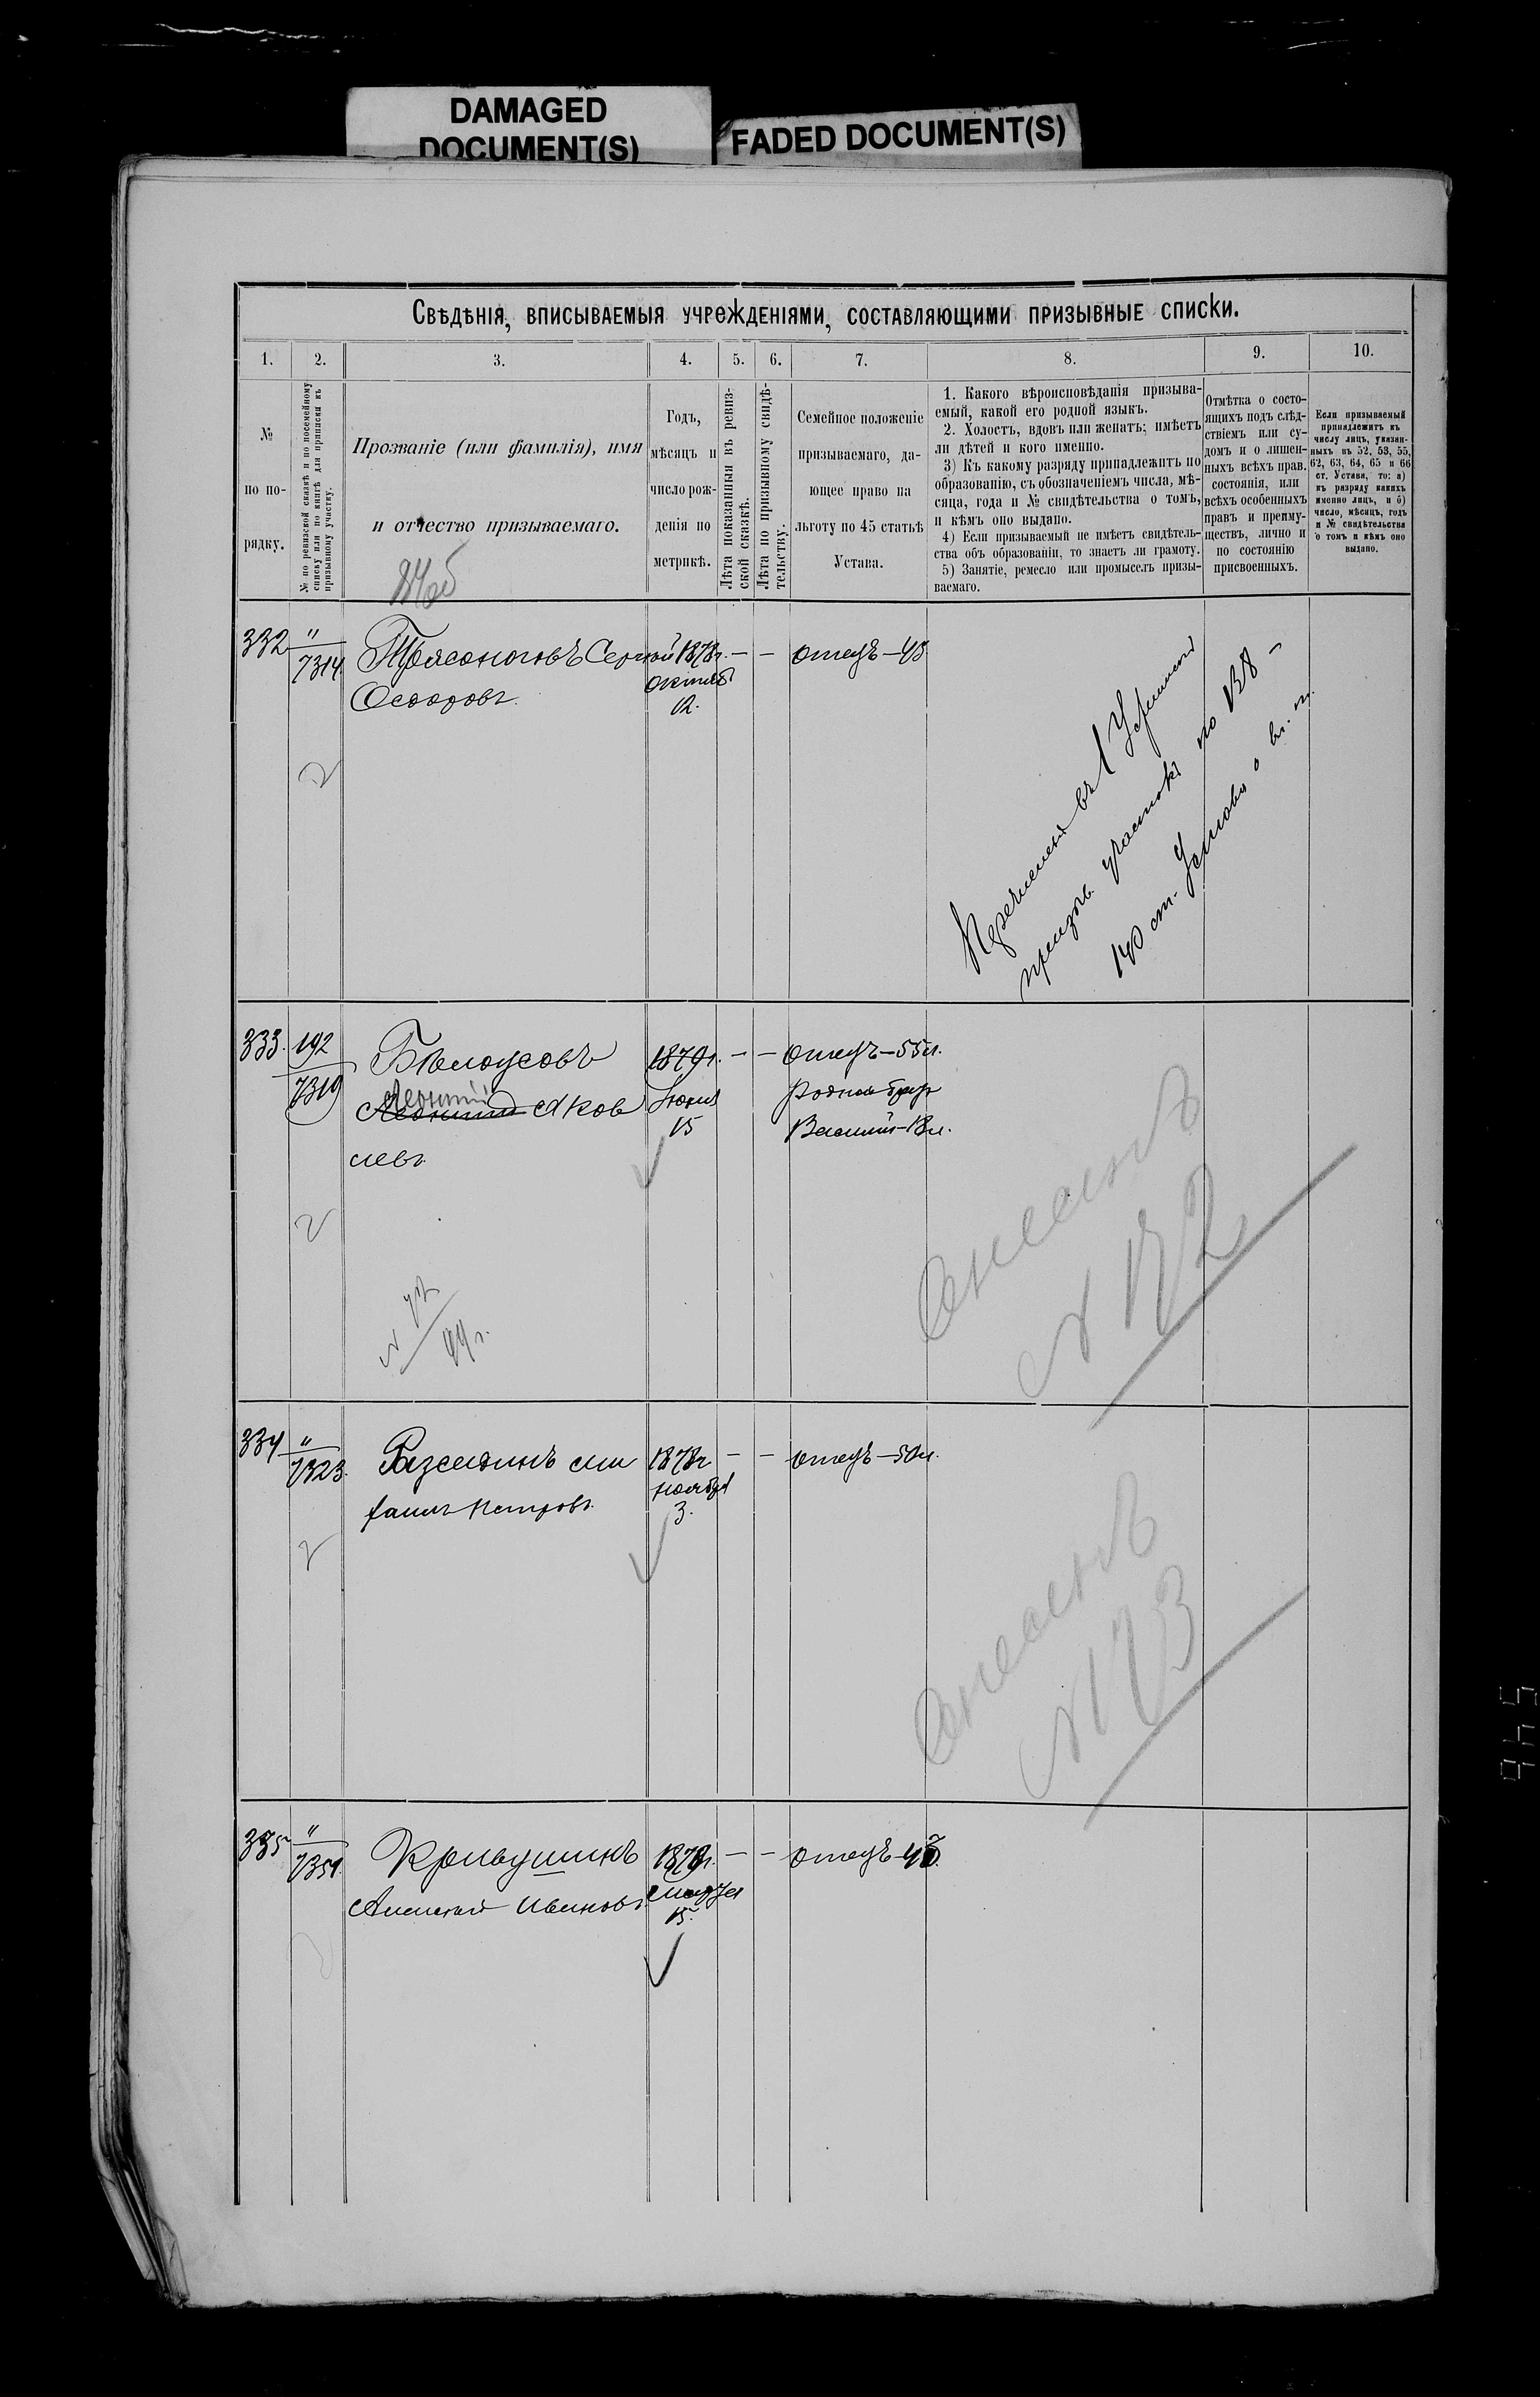 DAMAGED
DOCUMENT(S)
FADED DOCUMENT(S)
Свѣдѣнія, вписываемыя учрежденіями, составляющими призывные списки.
1. 2. 3. 4. 5. 6. 7. 8. 9. 10.
№
по по-
рядку.
№ по ревизской сказкѣ и по посемейному
списку или по книгѣ для приписки къ
призывному участку.
Прозваніе (или фамилія), имя
и отчество призываемаго.
Годъ,
мѣсяцъ и
число рож-
денія по
метрикѣ.
Лѣта показанныя въ ревиз-
ской сказкѣ.
Лѣта по призывному свидѣ-
тельству.
Семейное положеніе
призываемаго, да-
ющее право на
льготу по 45 статьѣ
Устава.
1. Какого вѣроисповѣданія призыва-
емый, какой его родной языкъ.
2. Холостъ, вдовъ или женатъ; имѣетъ
ли дѣтей и кого именно.
3) Къ какому разряду принадлежитъ по
образованію, съ обозначеніемъ числа, мѣ-
сяца, года и № свидѣтельства о томъ,
и кѣмъ оно выдано.
4) Если призываемый не имѣетъ свидѣтель-
ства объ образованіи, то знаетъ ли грамоту.
5) Занятіе, ремесло или промыселъ призы-
ваемаго.
Отмѣтка о состо-
ящихъ подъ слѣд-
ствіемъ или су-
домъ и о лишен-
ныхъ всѣхъ прав.
состоянія, или
всѣхъ особенныхъ
правъ и преиму-
ществъ, лично и
по состоянію
присвоенныхъ.
Если призываемый
принадлежитъ къ
числу лицъ, указан-
ныхъ въ 52, 53, 55,
62, 63, 64, 65 и 66
ст. Устава, то: а)
къ разряду какихъ
именно лицъ, и б)
число, мѣсяцъ, годъ
и № свидѣтельства
о томъ и кѣмъ оно
выдано.
332 " 7314 Трясоноговъ Сергѣй 1878г. — — отецъ—48
Федоровъ октяб
12.
2
Перечисленъ въ 1
призыв. участокъ по 138 -
140 ст. Устава о в. п.
333. 192 7319 Бѣлоусовъ 1879г. — — отецъ—55л.
Леонтій Яков Іюня родной братъ
левъ. 15 Василій—18л.
2
№ 99г.
№ 172
334 " 7323. Разсадинъ Ми 1878г — — отецъ—50л.
хаилъ Петровъ. ноября
3.
2
№ 173
335 " 7351. Кривушинъ 1878г. — — отецъ—
Алексѣй Ивановъ. Марта
15.
945